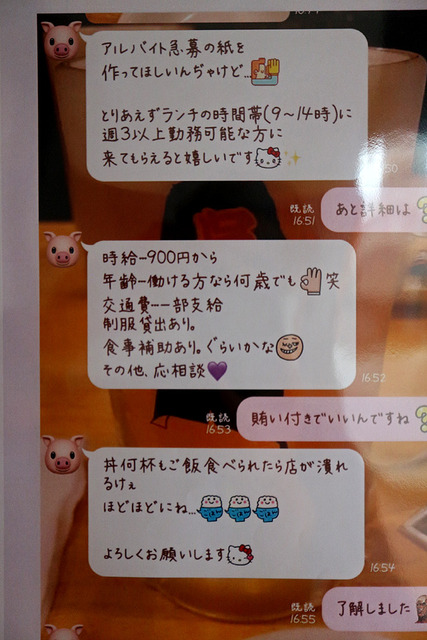 アルバイト急募の紙を
作ってほしいんぢゃけど…
とりあえずランチの時間帯(9〜14時)に
週3以上勤務可能な方に
来てもらえると嬉しいです
既読
16:51
あと詳細は
時給ー900円から
年齢ー働ける方なら何歳でも👌笑
交通費ー一部支給
制服貸出あり。
食事補助あり。ぐらいかな
その他、応相談💜
16:52
既読
16:53
賄い付きでいいんですね
丼何杯もご飯食べられたら店が潰れ
るけぇ
ほどほどにね…
よろしくお願いします
16:54
既読
16:55
了解しました